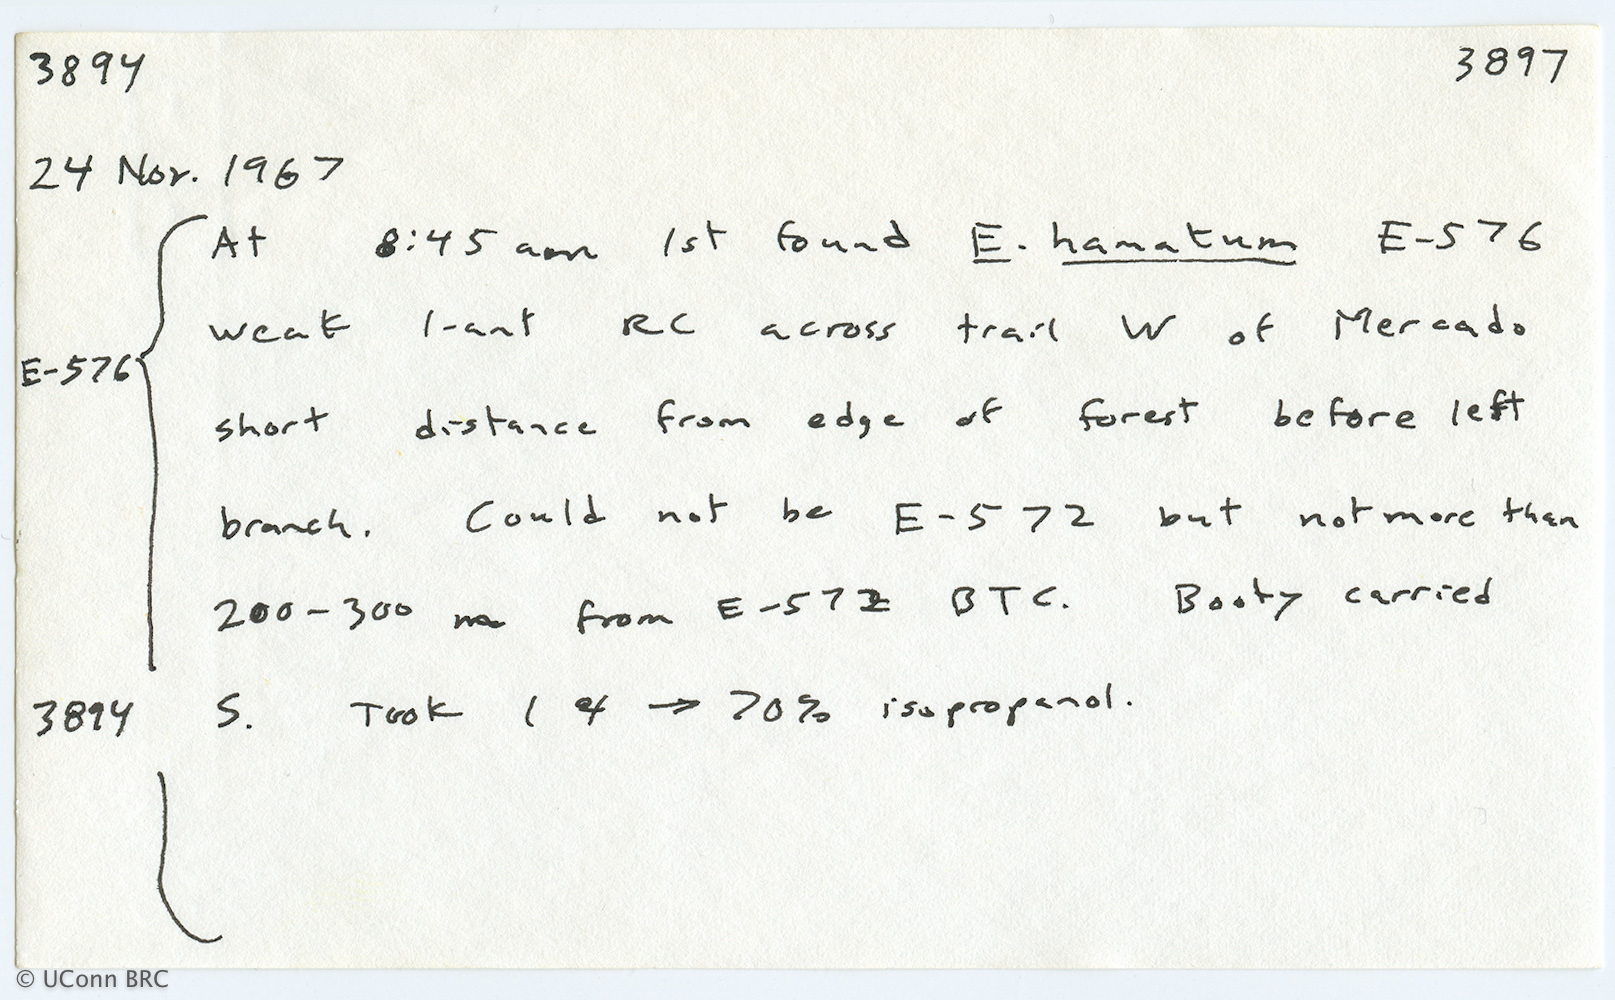 3894 3897
24 Nov. 1967
At 8:45 am 1st found E. hamatum E-576
weak 1-ant RC across trail W of Mercado
E-576
short distance from edge of forest before left
branch. Could not be E-572 but not more than
200-300 m from E-572 BTC. Booty carried
3894 S. Took 1 → 70% isopropanol.
© UConn BRC